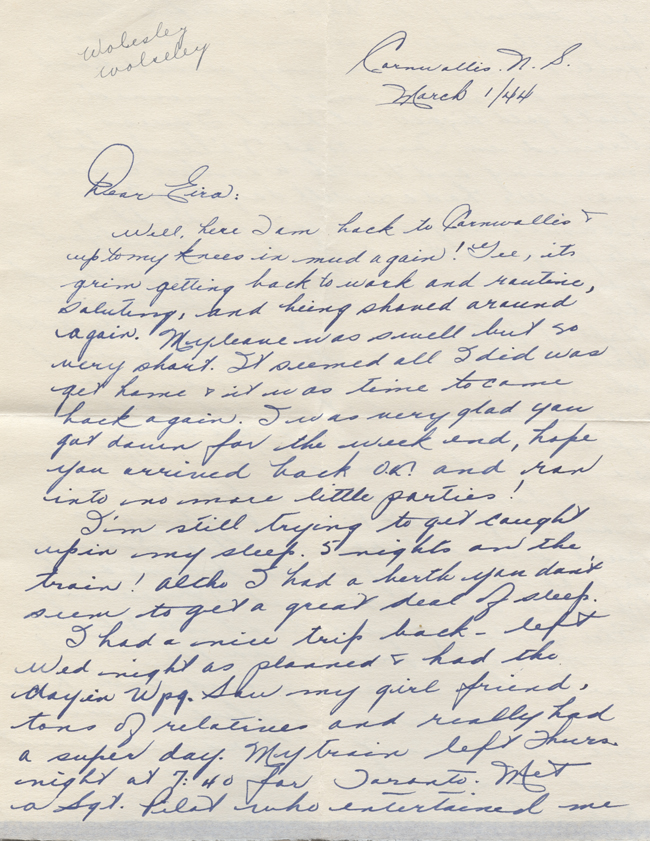 Wolesley
Wolseley
Cornwallis. N. S.
March 1/44
Dear Eira:
Well, here I am back to Cornwallis &
up to my knees in mud again! Gee, its
grim getting back to work and routine,
saluting, and being shoved around
again. My leave was swell but so
very short. It seemed all I did was
get home & it was time to come
back again. I was very glad you
got down for the week end, hope
you arrived back O.K. and ran
into no more little parties!
I'm still trying to get caught
up in my sleep. 5 nights on the
train! Altho I had a berth you don't
seem to get a great deal of sleep.
I had a nice trip back - left
Wed night as planned & had the
day in Wpg. Saw my girl friend,
tons of relatives and really had
a super day. My train left Thurs.
night at 7:40 for Toronto. Met
a Sgt. Pilot who entertained me